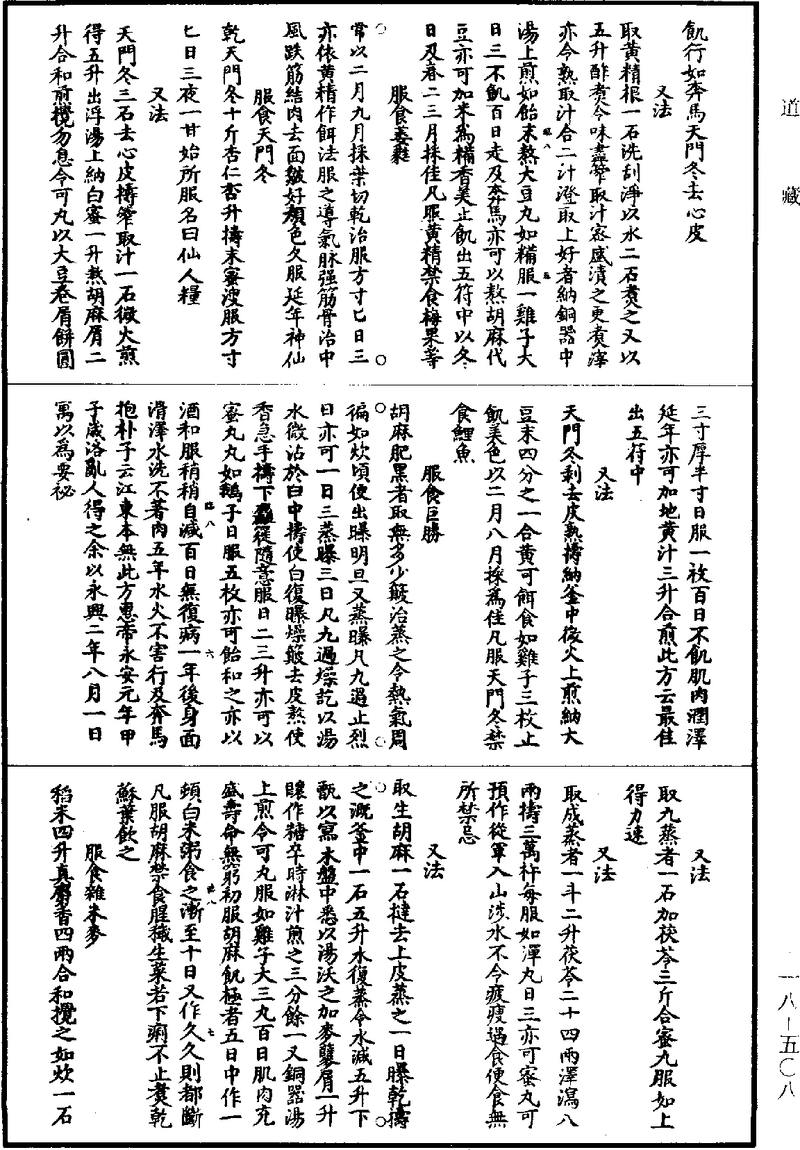 道藏
飢行如奔馬天門冬去心皮
又法
取黃精根一石洗刮淨以水二石煑之又以
五升酢煑令味盡搾取汁密盛漬之更煑滓
亦令熟取汁合二汁澄取上好者納銅器中
湯上煎如飴末熬大豆丸如糒服一雞子大
日三不飢百日走及奔馬亦可以熬胡麻代
豆亦可加米為糒香美止飢出五符中以冬
日及春二三月採佳凡服黃精禁食梅果等
服食萎蕤
常以二月九月採葉切乾治服方寸匕日三
亦依黃精作餌法服之導氣脉强筋骨治中
風跌筋結肉去面皺好顏色久服延年神仙
服食天門冬
乾天門冬十斤杏仁壹升擣末蜜溲服方寸
匕日三夜一甘始所服名曰仙人糧
又法
天門冬三石去心皮擣搾取汁一石微火煎
得五升出浮湯上納白蜜一升熬胡麻屑二
升合和煎攪勿息令可丸以大豆卷屑餅圓
三寸厚半寸日服一枚百日不飢肌肉潤澤
延年亦可加地黃汁三升合煎此方云最佳
出五符中
又法
天門冬剥去皮熟擣納釜中微火上煎納大
豆末四分之一合黃可餌食如雞子三枚止
飢美色以二月八月採為佳凡服天門冬禁
食鯉魚
服食巨勝
胡麻肥黑者取無多少簸治蒸之令熱氣周
徧如炊頃便出曝明旦又蒸曝凡九過止烈
日亦可一日三蒸曝三日凡九過燥訖以湯
水微沾於臼中擣使白復曝燥簸去皮熬使
香急手擣下麤篵隨意服日二三升亦可以
蜜丸丸如鷄子日服五枚亦可飴和之亦以
酒和服稍稍自減百日無復病一年後身面
滑澤水洗不著肉五年水火不害行及奔馬
抱朴子云江東本無此方惠帝永安元年甲
子歲洛亂人得之余以永興二年八月一日
寫以為要祕
又法
取九蒸者一石加茯苓三斤合蜜九服如上
得力速
又法
取成蒸者一斗二升茯苓二十四兩澤瀉八
兩擣三萬杵每服如彈丸日三亦可蜜丸可
預作從軍入山涉水不令疲瘦遇食便食無
所禁忌
又法
取生胡麻一石撻去上皮蒸之一日曝乾擣
之溉釜中一石五升水復蒸令水減五升下
甑以寫木盤中悉以湯沃之加麥糵屑一升
釀作糖卒時淋汁煎之三分餘一又銅器湯
上煎令可丸服如雞子大三丸百日肌肉充
盛壽命無窮初服胡麻飢極者五日中作一
頓白米粥食之漸至十日又作久久則都斷
凡服胡麻禁食腥穢生菜若下痢不止煑乾
蘇葉飲之
服食雜米麥
稻米四升真麝香四兩合和攪之如炊一石
一八—五〇八